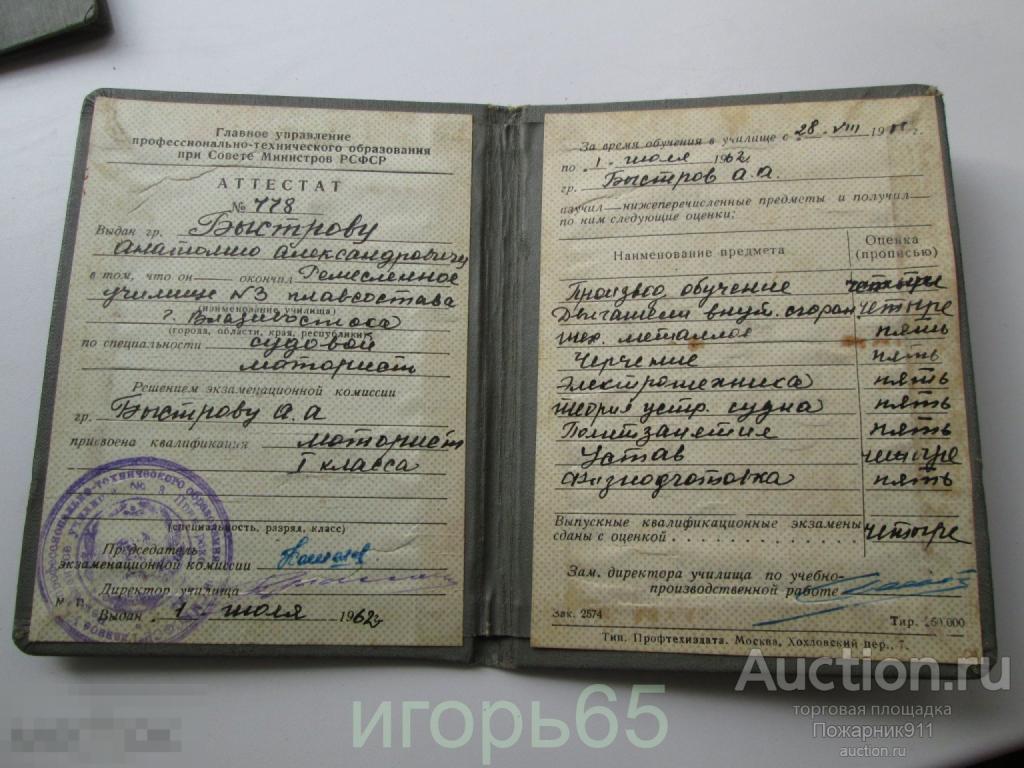 Главное управление
профессионально-технического образования
при Совете Министров РСФСР
АТТЕСТАТ
№ 778
Выдан гр. Быстрову
Анатолию Александровичу
в том, что он окончил Ремесленное
училище №3 плавсостава
(наименование училища)
г. Владивостока
(города, области, края, республики)
по специальности судовой
моторист
Решением экзаменационной комиссии
гр. Быстрову А.А
присвоена квалификация моторист
I класса
(специальность, разряд, класс)
Председатель
экзаменационной комиссии
Директор училища
М. П.
Выдан 1 июля 1962 г.
За время обучения в училище с 28. VIII 19 г.
по 1. июля 1962 г.
гр. Быстров А.А.
изучил нижеперечисленные предметы и получил
по ним следующие оценки:
Наименование предмета Оценка (прописью)
Производ. обучение четыре
Двигатели внут. сгоран четыре
тех. металлов пять
Черчение пять
Электротехника пять
теория устр. судна пять
Политзанятия пять
Устав четыре
Физподготовка пять
Выпускные квалификационные экзамены
сданы с оценкой четыре
Зам. директора училища по учебно-
производственной работе
Зак. 2574 Тир. 150.000
Тип. Профтехиздата. Москва, Хохловский пер., 7.
Auction.ru
торговая площадка
Пожарник911
auction.ru
игорь65